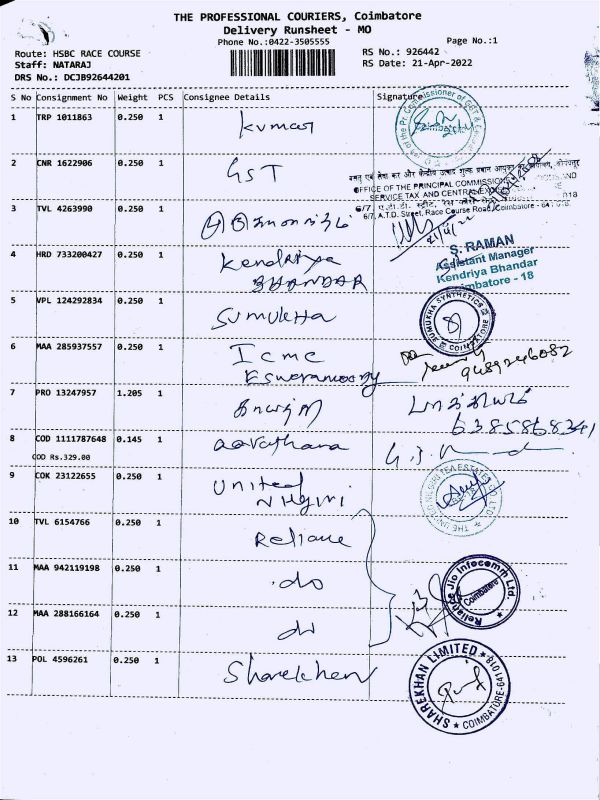 THE PROFESSIONAL COURIERS, Coimbatore
Delivery Runsheet - MO
Phone No.:0422-3505555
Page No.:1
Route: HSBC RACE COURSE
RS No.: 926442
Staff: NATARAJ
RS Date: 21-Apr-2022
DRS No.: DCJB92644201
S No Consignment No Weight PCS Consignee Details Signature
1 TRP 1011863 0.250 1 Kumar
2 CNR 1622906 0.250 1 GST
OFFICE OF THE PRINCIPAL COMMISSIONER
SERVICE TAX AND CENTRAL
6/7, A.T.D. Street, Race Course Road, Coimbatore - 641 018.
3 TVL 4263990 0.250 1
4 HRD 733200427 0.250 1 Kendriya
BHANDAR
S. RAMAN
Assistant Manager
Kendriya Bhandar
Coimbatore - 18
5 VPL 124292834 0.250 1 Sumuletha
SUMUKHA SYNTHETICS
COIMBATORE
6 MAA 285937557 0.250 1 Icmc
Eswaramoorthy
9489246082
7 PRO 13247957 1.205 1
6385868341
8 COD 1111787648 0.145 1 aarathana
COD Rs.329.00
9 COK 23122655 0.250 1 United
Nilgiri
THE UNITED NILGIRI TEA ESTATES CO. LTD.
10 TVL 6154766 0.250 1 Reliance
11 MAA 942119198 0.250 1 do
Reliance Jio Infocomm Ltd.
Coimbatore
12 MAA 288166164 0.250 1 do
13 POL 4596261 0.250 1 Sharekhan
SHAREKHAN LIMITED
COIMBATORE-641018